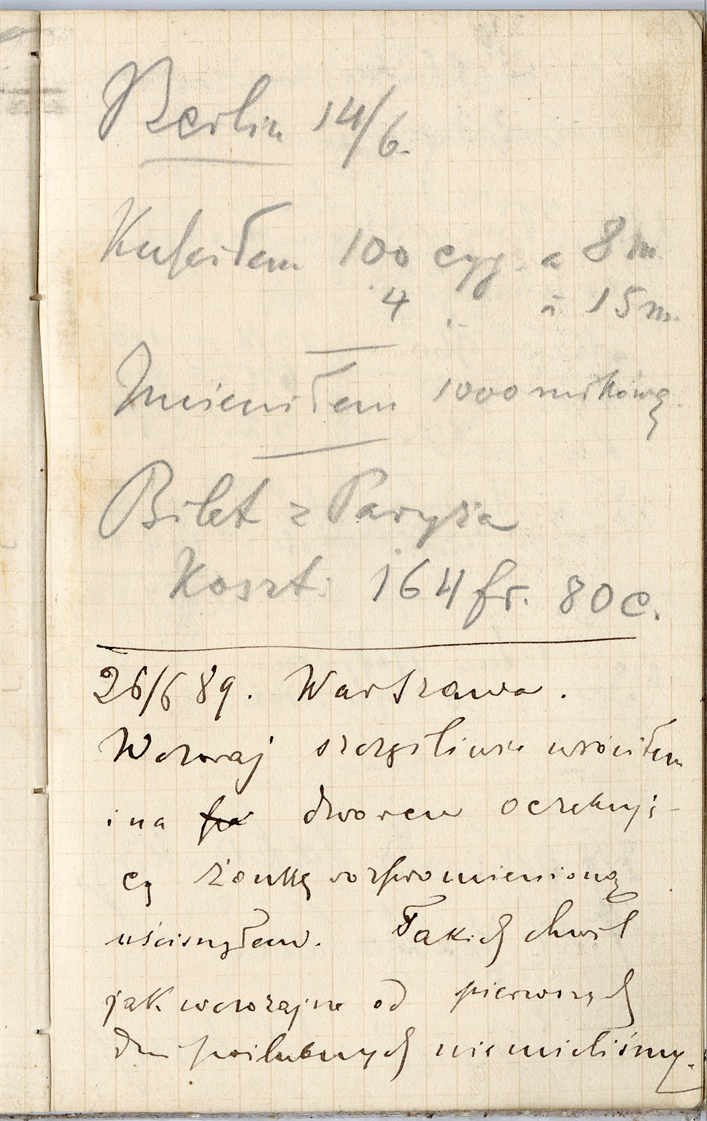 Berlin 14/6.
Kupiłem 100 cyg. a 8 m.
4 " à 15 m.
Zmieniłem 1000 mrkową
Bilet z Paryża
Koszt. 164 fr. 80 c.
26/6 89. Warszawa.
Wczoraj szczęśliwie wróciłem
i na dworcu oczekują-
cą żonkę rozpromienioną
uścisnąłem. Takich chwil
jak wczorajsze od pierwszych
dni poślubnych nie mieliśmy.